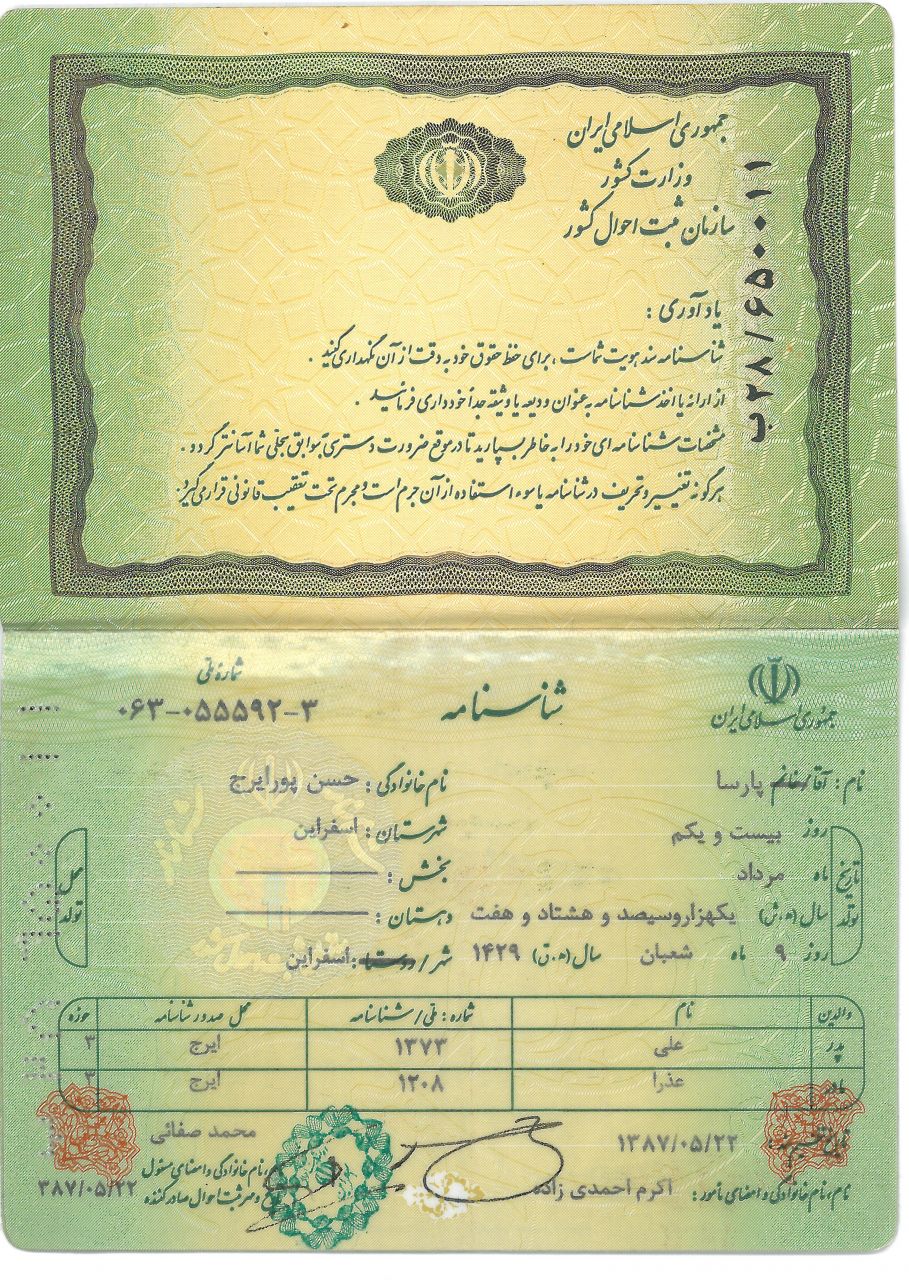 جمهوری اسلامی ایران
وزارت کشور
سازمان ثبت احوال کشور
ب ۲۸/۶۵۰۰۱۱
یادآوری :
شناسنامه سند هویت شماست ، برای حفظ حقوق خود به دقت از آن نگهداری کنید .
از ارائه یا اخذ شناسنامه به عنوان ودیعه یا وثیقه جداً خودداری فرمائید .
مشخصات شناسنامه ای خود را به خاطر بسپارید تا در موقع ضرورت دسترسی به سوابق سجلی شما آسانتر گردد .
هرگونه تغییر و تحریف در شناسنامه یا سوء استفاده از آن جرم است و مجرم تحت تعقیب قانونی قرار می گیرد.
جمهوری اسلامی ایران
شناسنامه
شماره ملی
۰۶۳-۰۵۵۵۹۲-۳
نام : آقا/خانم پارسا
نام خانوادگی : حسن پورایرج
تاریخ تولد
روز بیست و یکم
ماه مرداد
سال (ه.ش) یکهزاروسیصد و هشتاد و هفت
روز ۹ ماه شعبان سال (ه.ق) ۱۴۲۹
محل تولد
شهرستان : اسفراین
بخش :
دهستان :
شهر/روستا : اسفراین
والدین نام شماره : ملی/شناسنامه محل صدور شناسنامه حوزه
پدر علی ۱۳۷۳ ایرج ۳
مادر عذرا ۱۲۰۸ ایرج ۳
تاریخ تنظیم سند : ۱۳۸۷/۰۵/۲۲
نام، نام خانوادگی و امضای مأمور : اکرم احمدی زاده
محمد صفائی
نام، نام خانوادگی و امضای مسئول
و مهر ثبت احوال صادر کننده
۳۸۷/۰۵/۲۲